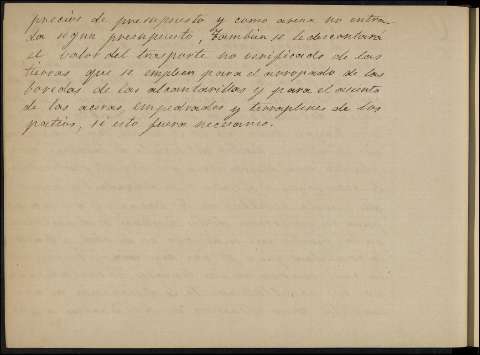 precios de presupuesto y como arena no entra-
da segun presupuesto, Tambien se le descontará
el valor del trasporte no verificado de las
tierras que se empleen para el arropado de las
bovedas de las alcantarillas y para el asiento
de las aceras, empedrados y terraplenes de los
patios, si esto fuera necesario.